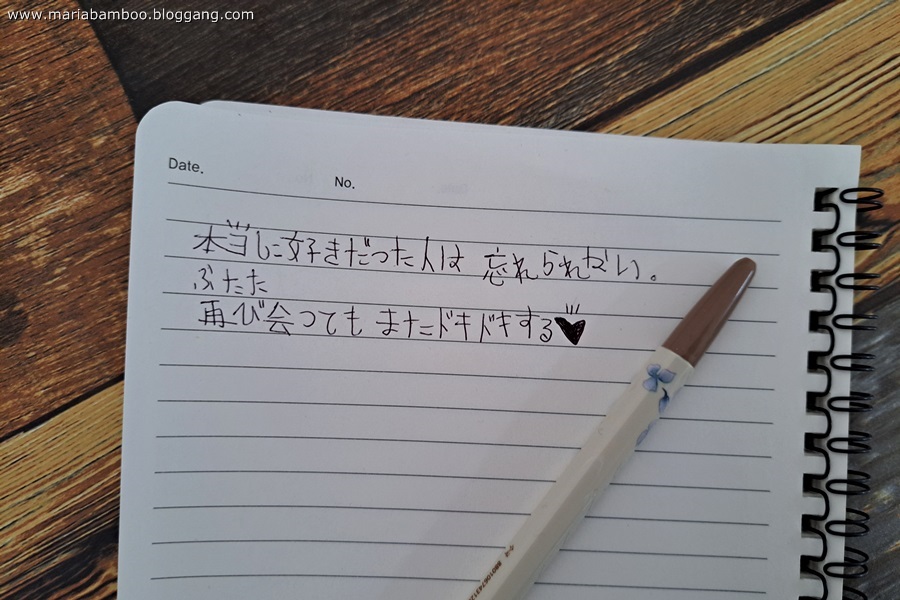 www.mariabamboo.bloggang.com
Date.
No.
本当に好きだった人は 忘れられない。
ぶたた
再び会っても またドキドキする♥